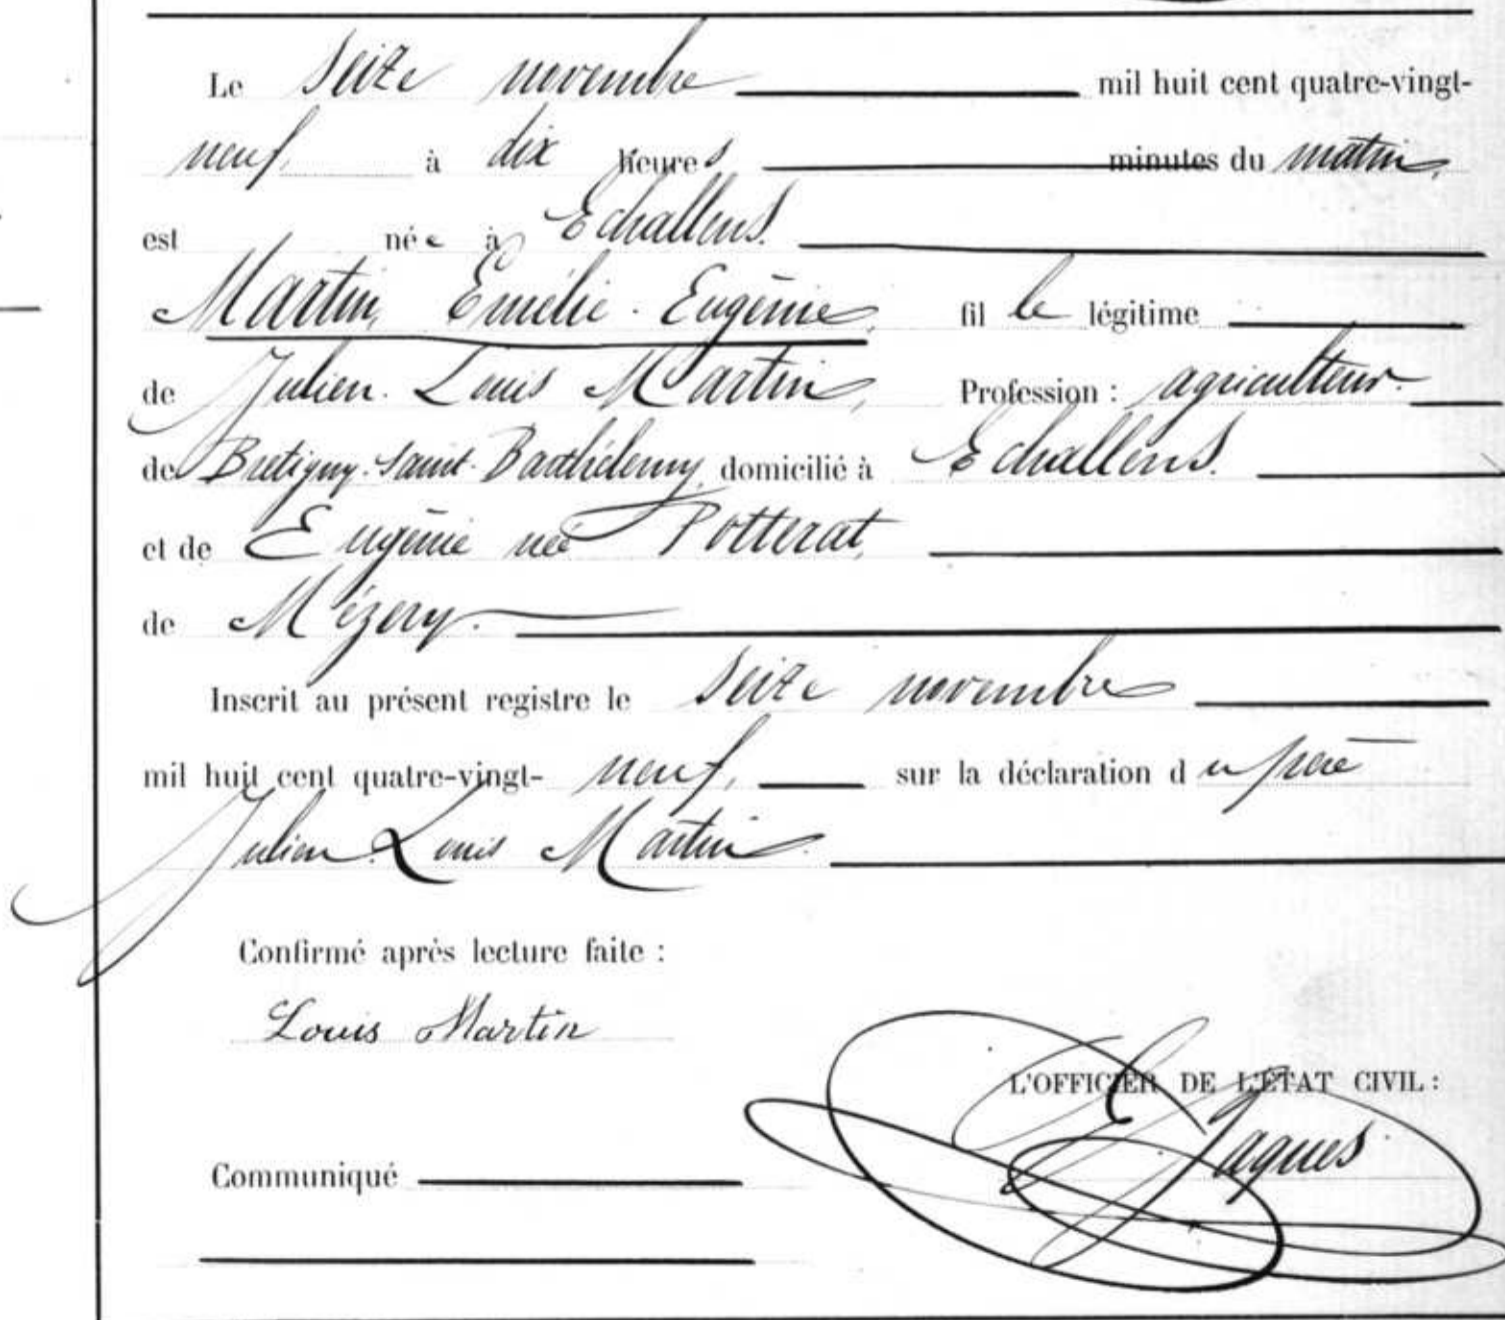 Le seize novembre mil huit cent quatre-vingt-
neuf, à dix heures minutes du matin,
est née à Echallens.
Martin, Emélie-Eugénie, fille légitime
de Julien-Louis Martin, Profession : agriculteur.
de Bretigny-Saint-Barthélemy, domicilié à Echallens.
et de Eugénie née Potterat,
de Mézery.
Inscrit au présent registre le seize novembre
mil huit cent quatre-vingt- neuf, sur la déclaration du père
Julien-Louis Martin.
Confirmé après lecture faite :
Louis Martin
L'OFFICIER DE L'ÉTAT CIVIL :
Jaques
Communiqué